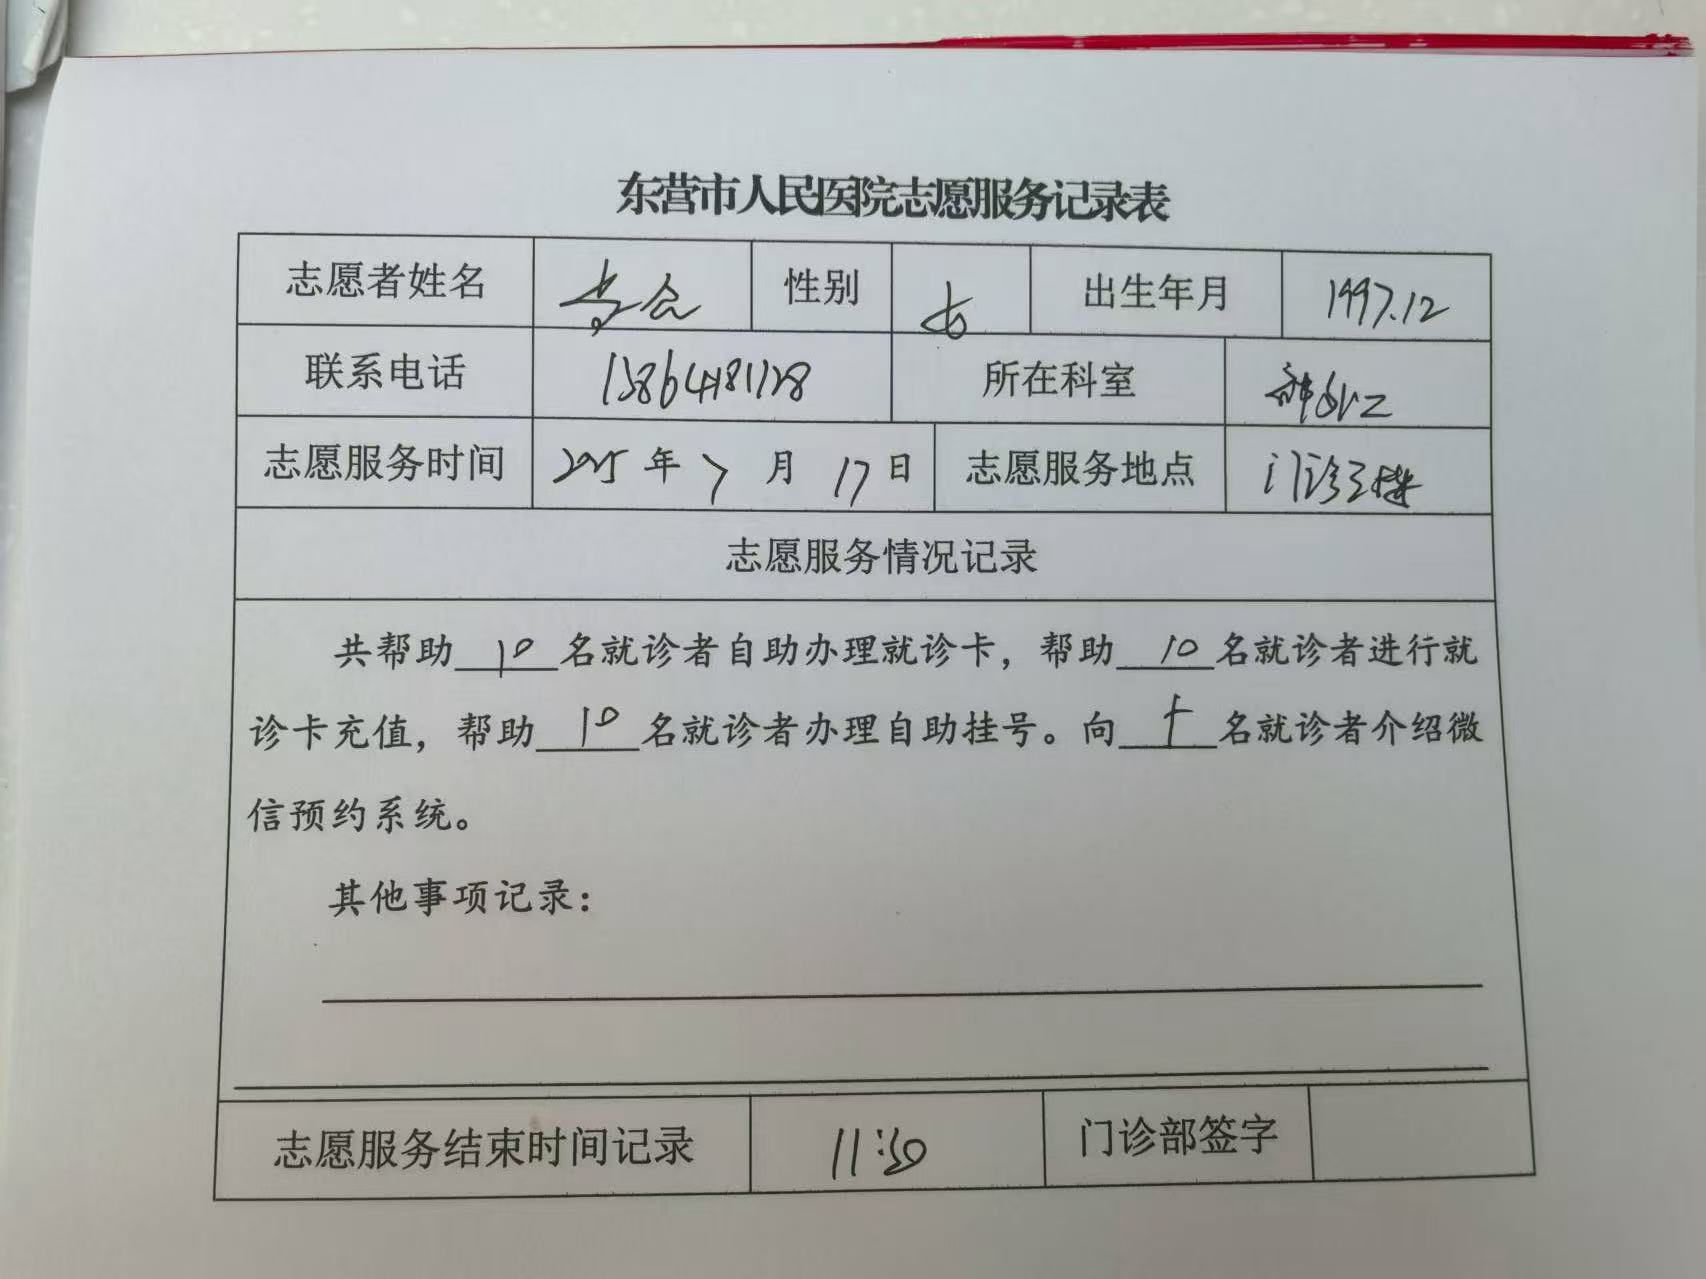 东营市人民医院志愿服务记录表
志愿者姓名 性别 女 出生年月 1997.12
联系电话 13864181128 所在科室
志愿服务时间 2025 年 7 月 17 日 志愿服务地点 门诊三楼
志愿服务情况记录
共帮助 10 名就诊者自助办理就诊卡，帮助 10 名就诊者进行就
诊卡充值，帮助 10 名就诊者办理自助挂号。向 十 名就诊者介绍微
信预约系统。
其他事项记录：
志愿服务结束时间记录 11:30 门诊部签字